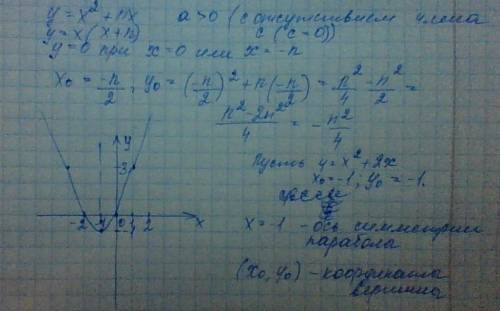 y = x² + nx    a > 0 (с отсутствием члена
y = x(x+n)    c (c = 0))
y = 0 при x = 0 или x = -n
x₀ = -n/2 ; y₀ = (-n/2)² + n(-n/2) = n²/4 - n²/2 =
(n² - 2n²)/4 = -n²/4
Пусть y = x² + 2x
x₀ = -1 ; y₀ = -1.
x = -1 - ось симметрии
параболы
(x₀, y₀) - координаты
вершины
y
3
-2 -1 0 1 2 x